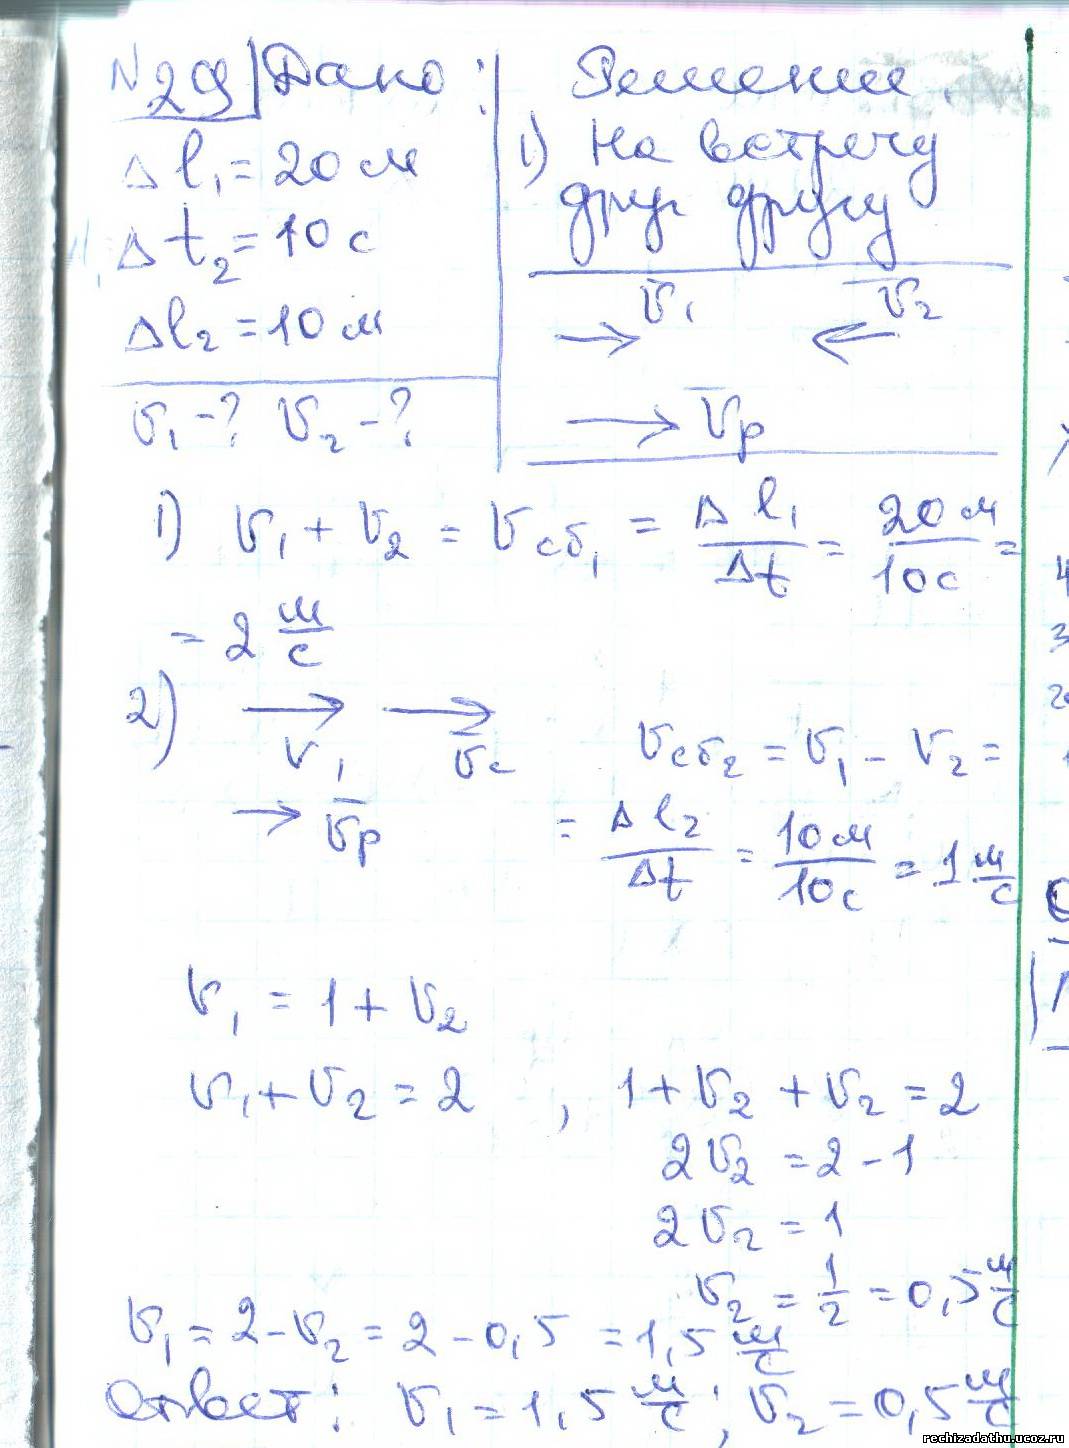 №29 Дано:
Δl₁ = 20 м
Δt₂ = 10 с
Δl₂ = 10 м
v₁ - ? v₂ - ?
Решение.
1) На встречу
друг другу
v̄₁ v̄₂
v̄р
1) v₁ + v₂ = vсб₁ = Δl₁/Δt = 20 м/10 с =
= 2 м/с
2)
v₁ v̄с
v̄р
vсб₂ = v₁ - v₂ =
= Δl₂/Δt = 10 м/10 с = 1 м/с
v₁ = 1 + v₂
v₁ + v₂ = 2 , 1 + v₂ + v₂ = 2
2v₂ = 2 - 1
2v₂ = 1
v₂ = 1/2 = 0,5 м/с
v₁ = 2 - v₂ = 2 - 0,5 = 1,5 м/с
Ответ: v₁ = 1,5 м/с; v₂ = 0,5 м/с
rechizadathu.ucoz.ru